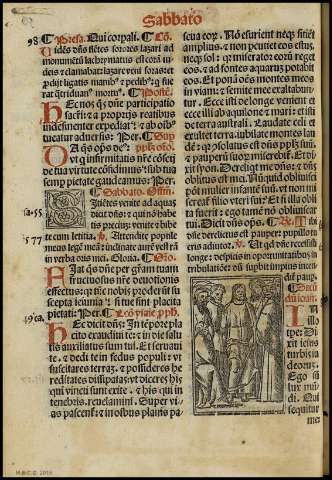 Sabbato
98. Prefa. Qui corpali. Co
Uidẽs dñs flẽtes sorores lazari ad
monumẽtũ lachrymatus est corã iu
deis ⁊ clamabat: lazare veni foras: et
prodijt ligatis manib⁹ ⁊ pedib⁹: q̃ fue
rat q̃triduan⁹ mortu⁹. Postc.
Hec nos q̃s dñe participatio
sacrĩ: ⁊ a proprijs reatibus
indesinenter expediat: ⁊ ab oĩbus
tueatur aduersis: Per.
ut q̃ infirmitatis nr̃e cõscij
de tua virtute cõfidimus: sub tua
semp pietate gaudeamus: Per.
Sabbato. Offi.
Sitiẽtes venite ad aquas
sa. 55
dicit dñs: ⁊ qui nõ habe
tis preciuʒ: venite ⁊ bibi
te cum letitia. Attendite popule
77
meus legẽ meã: inclinate aurẽ vestrã
in verba oris mei. Gloria.
Fiat q̃s dñe per gram tuam
fructuosus nr̃e deuotionis
effectus: q̃ tũc nobis proderũt su
scepta ieiunia: si tue sint placita
pietati: Per.
49 ca.
Hec dicit dñs: In tẽpore placi
to exaudiui te: ⁊ in die salu
tis auxiliatus sum tui. Et seruaui
te. ⁊ dedi te in fedus populi: vt
suscitares terraʒ. ⁊ possideres he
reditates dissipatas: vt diceres his
qui vincti sunt exite. ⁊ his qui in
tenebris. reuelamini. Super vi
as pascent̃: ⁊ in oĩbus planis pa
scua eoꝝ. Nõ esurient neqʒ sitiẽt
amplius. ⁊ non percutiet eos estus
neqʒ sol: qr miserator eorũ reget
eos. ⁊ ad fontes aquaruʒ potabit
eos. Et ponã oẽs montes meos
in viam: ⁊ semite mee exaltabun
tur. Ecce isti de longe venient: et
ecce illi ab aquilone ⁊ mari: ⁊ isti
de terra australi. Laudate celi et
exultet terra iubilate montes lau
dẽ: qr̃ cõsolatus est dñs pplm̃ suũ.
⁊ pauperũ suoꝝ misereb̃it̃. Et di
xit syon. Dereliqt me dñs: ⁊ dñs
oblitus est mei. Nũquid obliuisci
põt mulier infantẽ suũ. vt non mi
sereat̃ filio vteri sui? Et si illa obli
ta fuerit: ego tamẽ nõ obliuiscar
tui: Dicit dñs oĩps. Tibi
dñe derelictus est pauper: pupillo tu
eris adiutor. Ut qd dñe recessisti
longe: despicis in opportunitatibus in
tribulatiõe: dũ supbit impius incẽdit̃
pauper.
In illo
tpe: Di
xit iesus
turbis iu
deoruʒ.
Ego sũ
lux mũdi.
Qui
sequitur
me